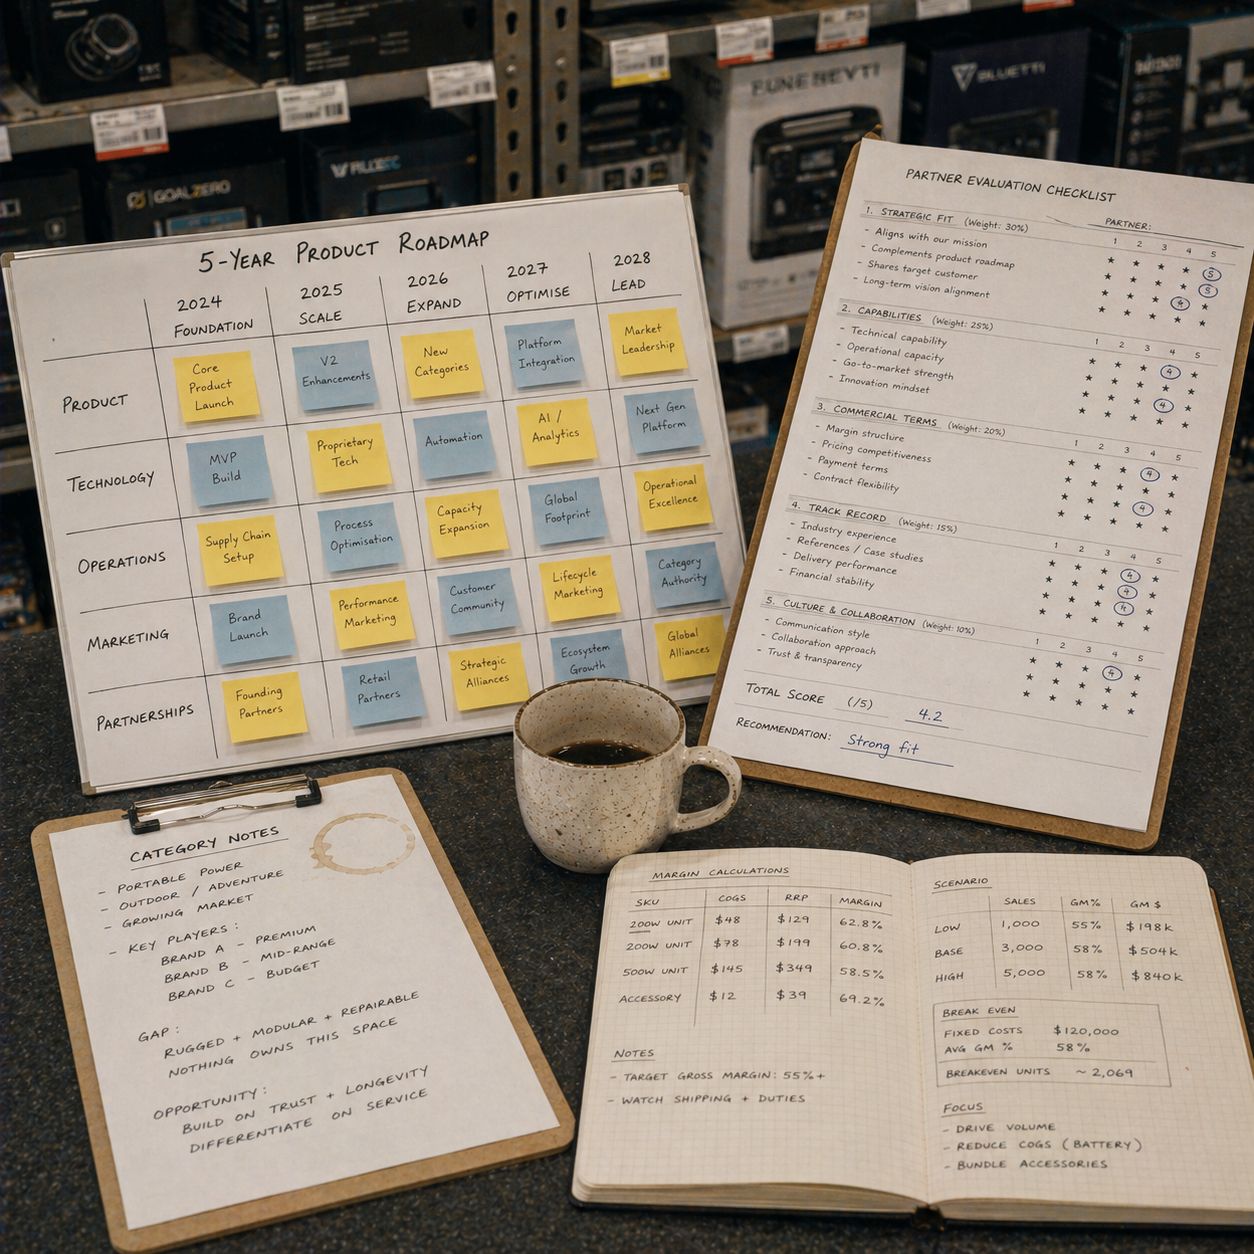 GOALZERO
BLUETTI
5-YEAR PRODUCT ROADMAP
2024 2025 2026 2027 2028
FOUNDATION SCALE EXPAND OPTIMISE LEAD
PRODUCT
Core Product Launch
V2 Enhancements
New Categories
Platform Integration
Market Leadership
TECHNOLOGY
MVP Build
Proprietary Tech
Automation
AI / Analytics
Next Gen Platform
OPERATIONS
Supply Chain Setup
Process Optimisation
Capacity Expansion
Global Footprint
Operational Excellence
MARKETING
Brand Launch
Performance Marketing
Customer Community
Lifecycle Marketing
Category Authority
PARTNERSHIPS
Founding Partners
Retail Partners
Strategic Alliances
Ecosystem Growth
Global Alliances
PARTNER EVALUATION CHECKLIST
PARTNER:
1. STRATEGIC FIT (Weight: 30%)
1 2 3 4 5
- Aligns with our mission
- Complements product roadmap 5
- Shares target customer 5
- Long-term vision alignment 4
2. CAPABILITIES (Weight: 25%)
1 2 3 4 5
- Technical capability
- Operational capacity 4
- Go-to-market strength
- Innovation mindset 4
3. COMMERCIAL TERMS (Weight: 20%)
1 2 3 4 5
- Margin structure
- Pricing competitiveness 4
- Payment terms
- Contract flexibility 4
4. TRACK RECORD (Weight: 15%)
1 2 3 4 5
- Industry experience
- References / Case studies 4
- Delivery performance 4
- Financial stability 4
5. CULTURE & COLLABORATION (Weight: 10%)
1 2 3 4 5
- Communication style
- Collaboration approach 4
- Trust & transparency
TOTAL SCORE (/5) 4.2
RECOMMENDATION: Strong fit
CATEGORY NOTES
- PORTABLE POWER
- OUTDOOR / ADVENTURE
- GROWING MARKET
- KEY PLAYERS:
BRAND A - PREMIUM
BRAND B - MID-RANGE
BRAND C - BUDGET
GAP:
RUGGED + MODULAR + REPAIRABLE
NOTHING OWNS THIS SPACE
OPPORTUNITY:
BUILD ON TRUST + LONGEVITY
DIFFERENTIATE ON SERVICE
MARGIN CALCULATIONS
SKU COGS RRP MARGIN
200W UNIT $48 $129 62.8%
200W UNIT $78 $199 60.8%
500W UNIT $145 $349 58.5%
ACCESSORY $12 $39 69.2%
NOTES
- TARGET GROSS MARGIN: 55%+
- WATCH SHIPPING + DUTIES
SCENARIO
SALES GM% GM $
LOW 1,000 55% $198k
BASE 3,000 58% $504k
HIGH 5,000 58% $840k
BREAK EVEN
FIXED COSTS $120,000
AVG GM % 58%
BREAKEVEN UNITS ~ 2,069
FOCUS
- DRIVE VOLUME
- REDUCE COGS (BATTERY)
- BUNDLE ACCESSORIES